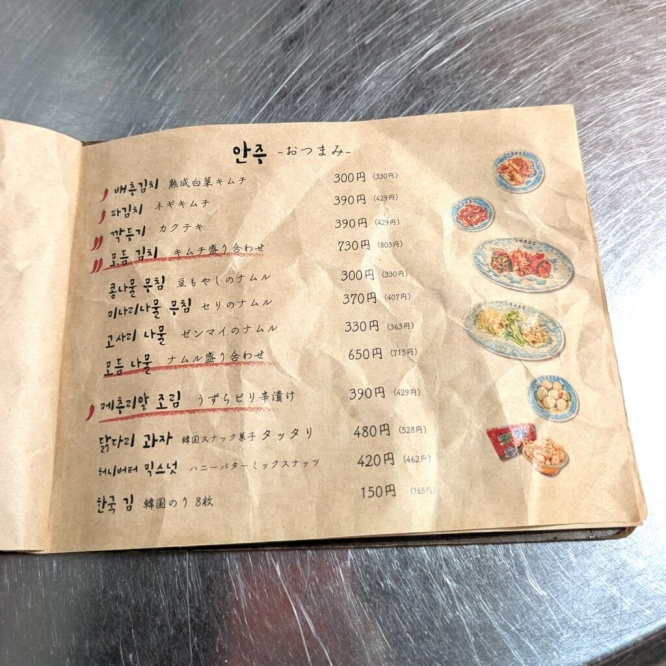 안주 -おつまみ-
배추김치 熟成白菜キムチ 300円 (330円)
파김치 ネギキムチ 390円 (429円)
깍두기 カクテキ 390円 (429円)
모듬 김치 キムチ盛り合わせ 730円 (803円)
콩나물 무침 豆もやしのナムル 300円 (330円)
미나리나물 무침 セリのナムル 370円 (407円)
고사리 나물 ゼンマイのナムル 330円 (363円)
모듬 나물 ナムル盛り合わせ 650円 (715円)
메추리알 조림 うずらピリ辛漬け 390円 (429円)
닭다리 과자 韓国スナック菓子 タッタリ 480円 (528円)
허니버터 믹스넛 ハニーバターミックスナッツ 420円 (462円)
한국 김 韓国のり 8枚 150円 (165円)